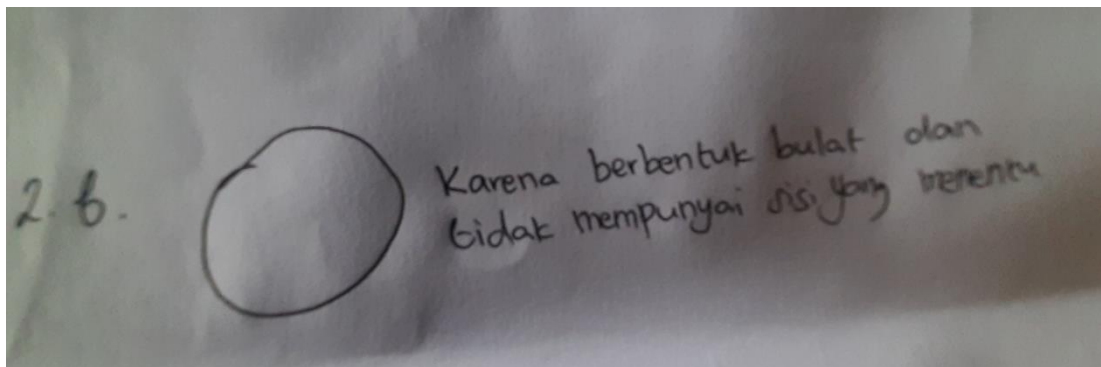 2. b.
Karena berbentuk bulat dan
tidak mempunyai sisi yang menentu